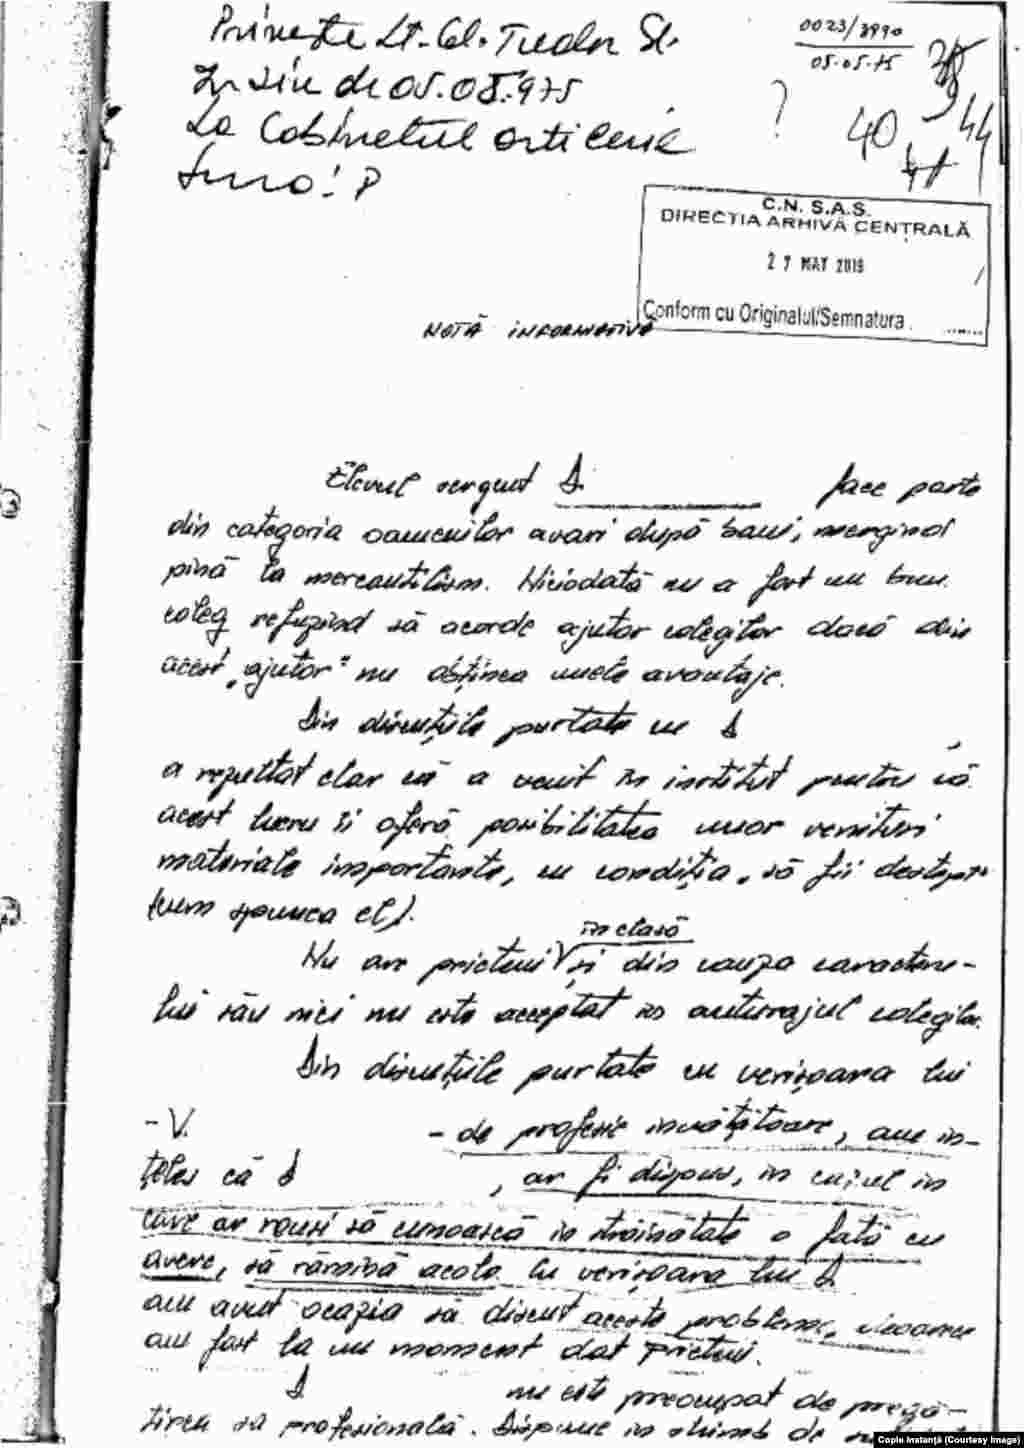 Privește Lt. Col. Tudor St.
În ziua de 05.05.975
La Cabinetul artilerie
0023/3990
05.05.75
?
40
44
C.N.S.A.S.
DIRECȚIA ARHIVĂ CENTRALĂ
27 MAY 2019
Conform cu Originalul/Semnatura
NOTĂ INFORMATIVĂ
Elevul sergent D. face parte
din categoria oamenilor avari după bani, mergînd
pînă la mercantilism. Niciodată nu a fost un bun
coleg refuzînd să acorde ajutor colegilor dacă din
acest „ajutor" nu obținea unele avantaje.
Din discuțiile purtate cu D
a rezultat clar că a venit în institut pentru că
acest lucru îi oferă posibilitatea unor venituri
materiale importante, cu condiția „să fii deștept"
(cum spunea el).
în clasă
Nu are prieteni și din cauza caracteru-
lui său nici nu este acceptat în anturajul colegilor.
Din discuțiile purtate cu verișoara lui
- V. - de profesie învățătoare, am în-
țeles că D , ar fi dispus, în cazul în
care ar reuși să cunoască în străinătate o fată cu
avere, să rămînă acolo. Cu verișoara lui D.
am avut ocazia să discut aceste probleme, deoarece
am fost la un moment dat prieteni.
D nu este preocupat de pregă-
tirea sa profesională. Dispune în schimb de
Copie Instanță (Courtesy Image)